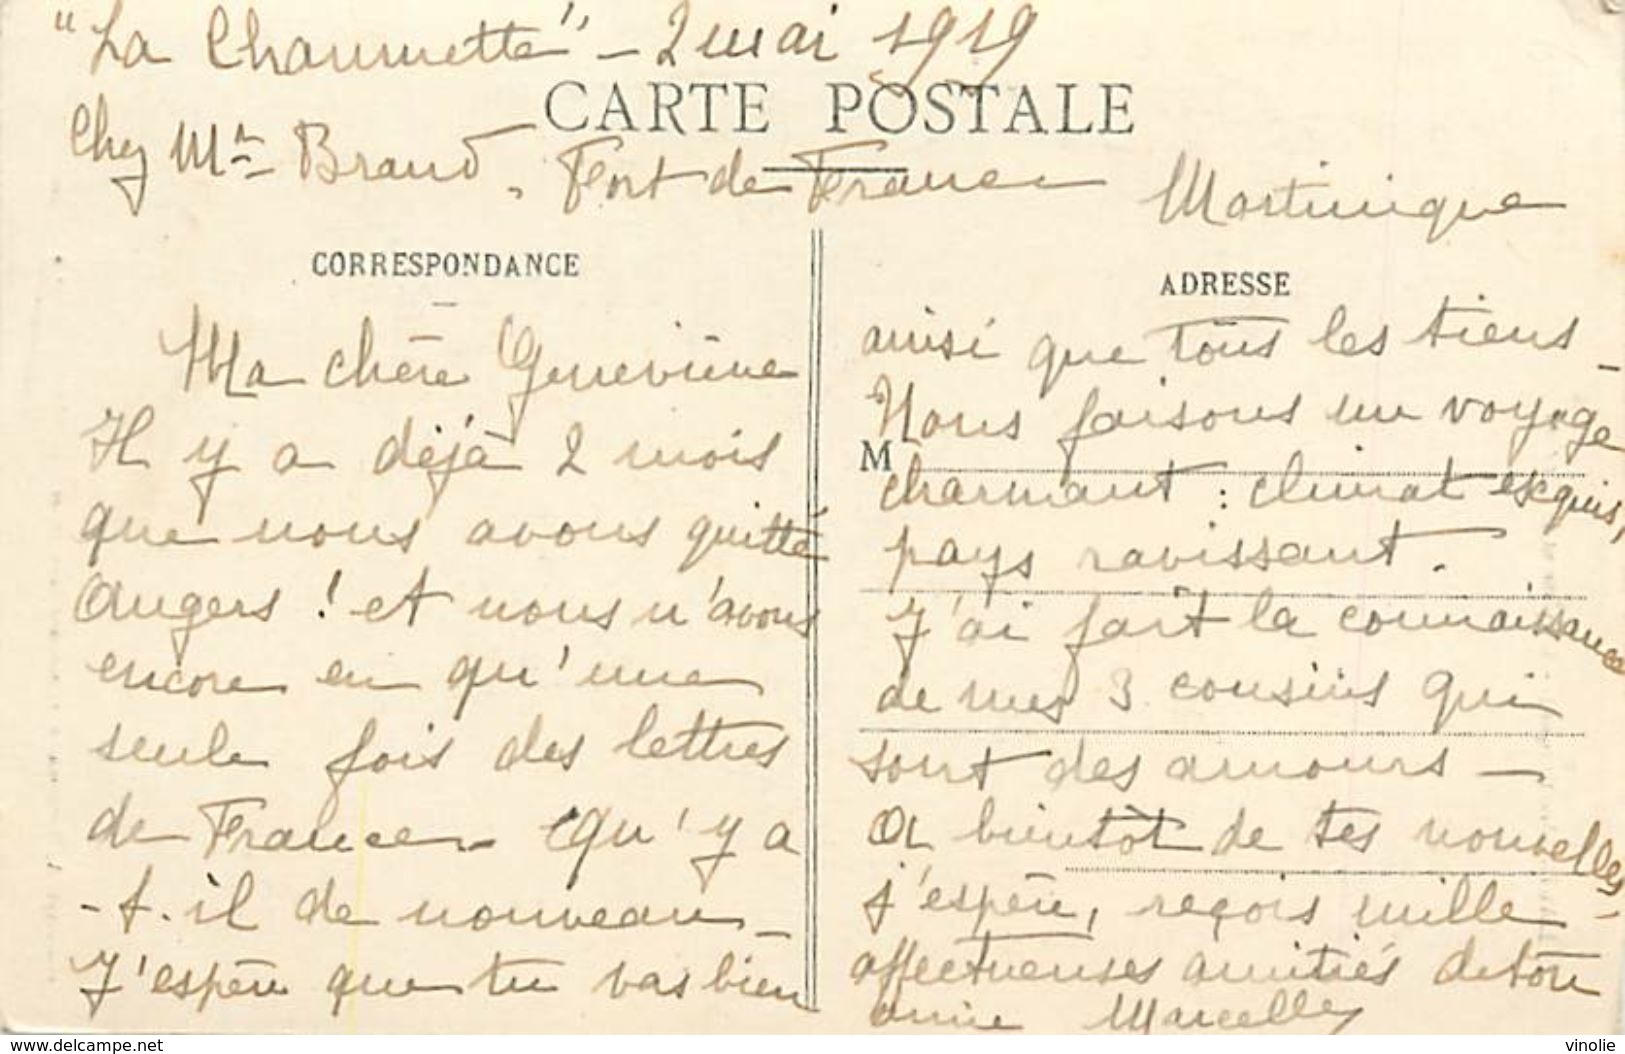 "La Chaumette" - 2 mai 1919
CARTE POSTALE
Chez Mr Braud, Fort de France Martinique
CORRESPONDANCE
Ma chère Geneviève
Il y a déjà 2 mois
que nous avons quitté
Angers ! et nous n'avons
encore eu qu'une
seule fois des lettres
de France - Qu'y a
-t-il de nouveau -
J'espère que tu vas bien
ADRESSE
ainsi que tous les tiens -
Nous faisons un voyage
M
charmant : climat exquis,
pays ravissant.
J'ai fait la connaissance
de mes 3 cousins qui
sont des amours -
A bientôt de tes nouvelles
j'espère, reçois mille
affectueuses amitiés de ton
amie Marcelle
www.delcampe.net
vinolie